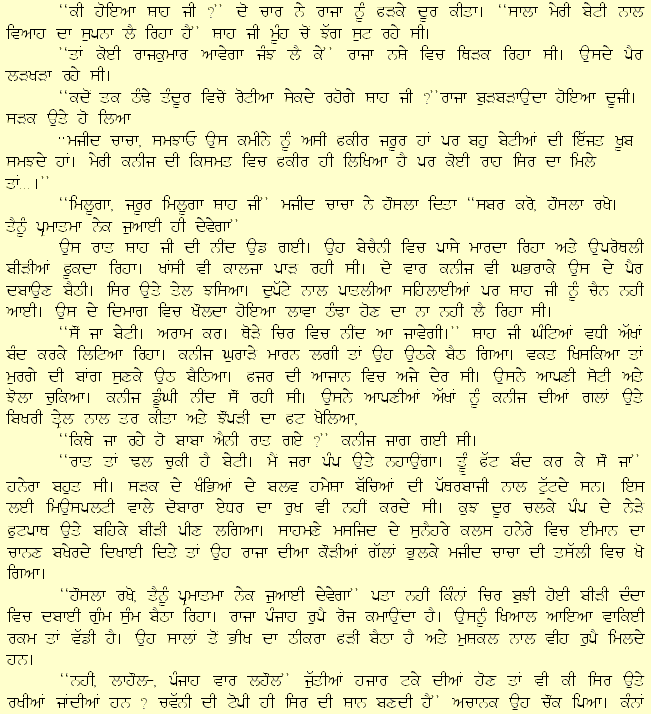 ‘‘ਕੀ ਹੋਇਆ ਸ਼ਾਹ ਜੀ ?’’ ਦੋ ਚਾਰ ਨੇ ਰਾਜਾ ਨੂੰ ਫੜਕੇ ਦੂਰ ਕੀਤਾ। ‘‘ਸਾਲਾ ਮੇਰੀ ਬੇਟੀ ਨਾਲ
ਵਿਆਹ ਦਾ ਸੁਪਨਾ ਲੈ ਰਿਹਾ ਹੈ’’ ਸਾਹ ਜੀ ਮੂੰਹ ਚੋ ਝੱਗ ਸੁਟ ਰਹੇ ਸੀ।
‘‘ਤਾਂ ਕੋਈ ਰਾਜਕੁਮਾਰ ਆਵੇਗਾ ਜੰਝ ਲੈ ਕੇ’’ ਰਾਜਾ ਨਸੇ ਵਿਚ ਥਿੜਕ ਰਿਹਾ ਸੀ। ਉਸਦੇ ਪੈਰ
ਲੜਖੜਾ ਰਹੇ ਸੀ।
‘‘ਕਦੋਂ ਤਕ ਠੰਢੇ ਤੰਦੂਰ ਵਿਚੋਂ ਰੋਟੀਆ ਸੇਕਦੇ ਰਹੋਗੇ ਸਾਹ ਜੀ ?’’ਰਾਜਾ ਬੁੜਬੜਾਉਦਾ ਹੋਇਆ ਦੂਜੀ।
ਸੜਕ ਉਤੇ ਹੋ ਲਿਆ
‘‘ਮਜੀਦ ਚਾਚਾ, ਸਮਝਾਓ ਉਸ ਕਮੀਨੇ ਨੂੰ ਅਸੀ ਫਕੀਰ ਜਰੂਰ ਹਾਂ ਪਰ ਬਹੁ ਬੇਟੀਆਂ ਦੀ ਇੱਜਤ ਖੂਬ
ਸਮਝਦੇ ਹਾਂ। ਮੇਰੀ ਕਨੀਜ ਦੀ ਕਿਸਮਤ ਵਿਚ ਫਕੀਰ ਹੀ ਲਿਖਿਆ ਹੈ ਪਰ ਕੋਈ ਰਾਹ ਸਿਰ ਦਾ ਮਿਲੇ
ਤਾਂ...।’’
‘‘ਮਿਲੂਗਾ, ਜਰੂਰ ਮਿਲੂਗਾ ਸਾਹ ਜੀ’’ ਮਜੀਦ ਚਾਚਾ ਨੇ ਹੌਸਲਾ ਦਿਤਾ ‘‘ਸਬਰ ਕਰੋ, ਹੌਸਲਾ ਰਖੋ।
ਤੈਨੂੰ ਪ੍ਰਮਾਤਮਾ ਨੇਕ ਜੁਆਈ ਹੀ ਦੇਵੇਗਾ’’
ਉਸ ਰਾਤ ਸਾਹ ਜੀ ਦੀ ਨੀਂਦ ਉਡ ਗਈ। ਉਹ ਬੇਚੈਨੀ ਵਿਚ ਪਾਸੇ ਮਾਰਦਾ ਰਿਹਾ ਅਤੇ ਉਪਰੋਥਲੀ
ਬੀੜੀਆਂ ਫੂਕਦਾ ਰਿਹਾ। ਖਾਂਸੀ ਵੀ ਕਾਲਜਾ ਪਾੜ ਰਹੀ ਸੀ। ਦੋ ਵਾਰ ਕਨੀਜ ਵੀ ਘਭਰਾਕੇ ਉਸ ਦੇ ਪੈਰ
ਦਬਾਉਣ ਬੈਠੀ। ਸਿਰ ਉਤੇ ਤੇਲ ਝਸਿਆ। ਦੁਪੱਟੇ ਨਾਲ ਪਾਤਲੀਆ ਸਹਿਲਾਈਆਂ ਪਰ ਸਾਹ ਜੀ ਨੂੰ ਚੈਨ ਨਹੀ
ਆਈ। ਉਸ ਦੇ ਦਿਮਾਗ ਵਿਚ ਖੌਲਦਾ ਹੋਇਆ ਲਾਵਾ ਠੰਢਾ ਹੋਣ ਦਾ ਨਾ ਨਹੀ ਲੈ ਰਿਹਾ ਸੀ।
‘‘ਸੌਂ ਜਾ ਬੇਟੀ। ਅਰਾਮ ਕਰ। ਥੋੜੇ ਚਿਰ ਵਿਚ ਨੀਂਦ ਆ ਜਾਵੇਗੀ।’’ ਸਾਹ ਜੀ ਘੰਟਿਆਂ ਵਧੀ ਅੱਖਾਂ
ਬੰਦ ਕਰਕੇ ਲਿਟਿਆ ਰਿਹਾ। ਕਨੀਜ ਘੁਰਾੜੇ ਮਾਰਨ ਲਗੀ ਤਾਂ ਉਹ ਉਠਕੇ ਬੈਠ ਗਿਆ। ਵਕਤ ਖਿਸਕਿਆ ਤਾਂ
ਮੁਰਗੇ ਦੀ ਬਾਂਗ ਸੁਣਕੇ ਉਠ ਬੈਠਿਆ। ਫਜਰ ਦੀ ਆਜਾਨ ਵਿਚ ਅਜੇ ਦੇਰ ਸੀ। ਉਸਨੇ ਆਪਣੀ ਸੋਟੀ ਅਤੇ
ਝੋਲਾ ਚੁਕਿਆ। ਕਨੀਜ ਡੂੰਘੀ ਨੀਂਦ ਸੌਂ ਰਹੀ ਸੀ। ਉਸਨੇ ਆਪਣੀਆਂ ਅੱਖਾਂ ਨੂੰ ਕਨੀਜ ਦੀਆਂ ਗਲਾਂ ਉਤੇ
ਬਿਖਰੀ ਤ੍ਰੇਲ ਨਾਲ ਤਰ ਕੀਤਾ ਅਤੇ ਝੌਂਪੜੀ ਦਾ ਫਟ ਖੋਲਿਆ,
‘‘ਕਿਥੇ ਜਾ ਰਹੇ ਹੋ ਬਾਬਾ ਐਨੀ ਰਾਤ ਗਏ ?’’ ਕਨੀਜ ਜਾਗ ਗਈ ਸੀ।
‘‘ਰਾਤ ਤਾਂ ਢਲ ਚੁਕੀ ਹੈ ਬੇਟੀ। ਮੈਂ ਜਰਾ ਪੰਪ ਉਤੇ ਨਹਾਉਂਗਾ। ਤੂੰ ਫੱਟ ਬੰਦ ਕਰ ਕੇ ਸੌਂ ਜਾਂ’’
ਹਨੇਰਾ ਬਹੁਤ ਸੀ। ਸੜਕ ਦੇ ਖੰਭਿਆਂ ਦੇ ਬਲਵ ਹਮੇਸਾ ਬੱਚਿਆਂ ਦੀ ਪੱਥਰਬਾਜੀ ਨਾਲ ਟੁੱਟਦੇ ਸਨ। ਇਸ
ਲਈ ਮਿਉਂਸਪਲਟੀ ਵਾਲੇ ਦੋਬਾਰਾ ਏਧਰ ਦਾ ਰੁਖ ਵੀ ਨਹੀਂ ਕਰਦੇ ਸੀ। ਕੁਝ ਦੂਰ ਚਲਕੇ ਪੰਪ ਦੇ ਨੇੜੇ
ਫੁਟਪਾਥ ਉਤੇ ਬਹਿਕੇ ਬੀੜੀ ਪੀਣ ਲਗਿਆ। ਸਾਹਮਣੇ ਮਸਜਿਦ ਦੇ ਸੁਨੈਹਰੇ ਕਲਸ ਹਨੇਰੇ ਵਿਚ ਈਮਾਨ ਦਾ
ਚਾਨਣ ਬਖੇਰਦੇ ਦਿਖਾਈ ਦਿਤੇ ਤਾਂ ਉਹ ਰਾਜਾ ਦੀਆ ਕੌੜੀਆਂ ਗੱਲਾਂ ਭੁਲਕੇ ਮਜੀਦ ਚਾਚਾ ਦੀ ਤਸੱਲੀ ਵਿਚ ਖੋ
ਗਿਆ।
‘‘ਹੌਸਲਾ ਰਖੋ, ਤੈਨੂੰ ਪ੍ਰਮਾਤਮਾ ਨੇਕ ਜੁਆਈ ਦੇਵੇਗਾ’’ ਪਤਾ ਨਹੀ ਕਿੰਨਾਂ ਚਿਰ ਬੁਝੀ ਹੋਈ ਬੀੜੀ ਦੰਦਾ
ਵਿਚ ਦਬਾਈ ਗੁੰਮ ਸੁੰਮ ਬੈਠਾ ਰਿਹਾ। ਰਾਜਾ ਪੰਜਾਹ ਰੁਪੈ ਰੋਜ ਕਮਾਉਂਦਾ ਹੈ। ਉਸਨੂੰ ਖਿਆਲ ਆਇਆ ਵਾਕਿਈ
ਰਕਮ ਤਾਂ ਵੱਡੀ ਹੈ। ਉਹ ਸਾਲਾਂ ਤੋਂ ਭੀਖ ਦਾ ਠੀਕਰਾ ਫੜੀ ਬੈਠਾ ਹੈ ਅਤੇ ਮੁਸਕਲ ਨਾਲ ਵੀਹ ਰੁਪੈ ਮਿਲਦੇ
ਹਨ।
‘‘ਨਹੀਂ, ਲਾਹੌਲ–, ਪੰਜਾਹ ਵਾਰ ਲਹੌਲ’’ ਜੁੱਤੀਆਂ ਹਜਾਰ ਟਕੇ ਦੀਆਂ ਹੋਣ ਤਾਂ ਵੀ ਕੀ ਸਿਰ ਉਤੇ
ਰਖੀਆਂ ਜਾਂਦੀਆਂ ਹਨ ? ਚਵੱਨੀ ਦੀ ਟੋਪੀ ਹੀ ਸਿਰ ਦੀ ਸ਼ਾਨ ਬਣਦੀ ਹੈ’’ ਅਚਾਨਕ ਉਹ ਚੌਂਕ ਪਿਆ। ਕੰਨਾਂ